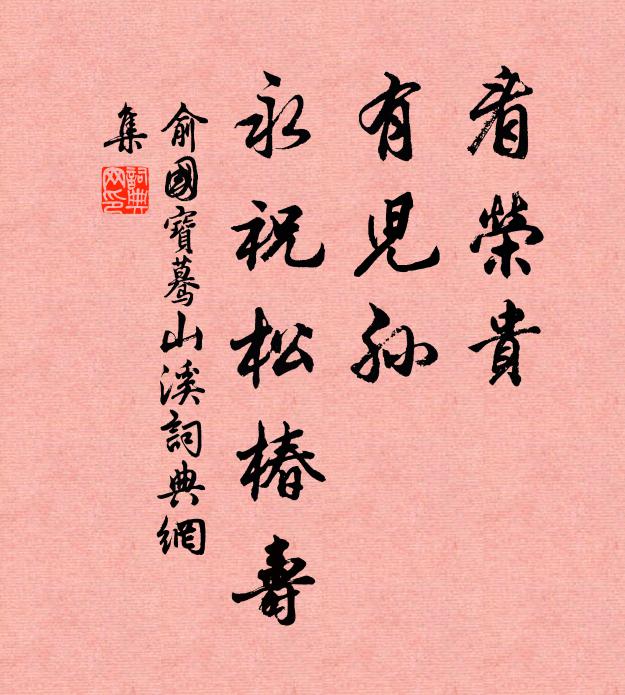 看榮貴
有児孫
永祝松椿壽
俞國寶驀山溪詞典網
集
詞典
网印